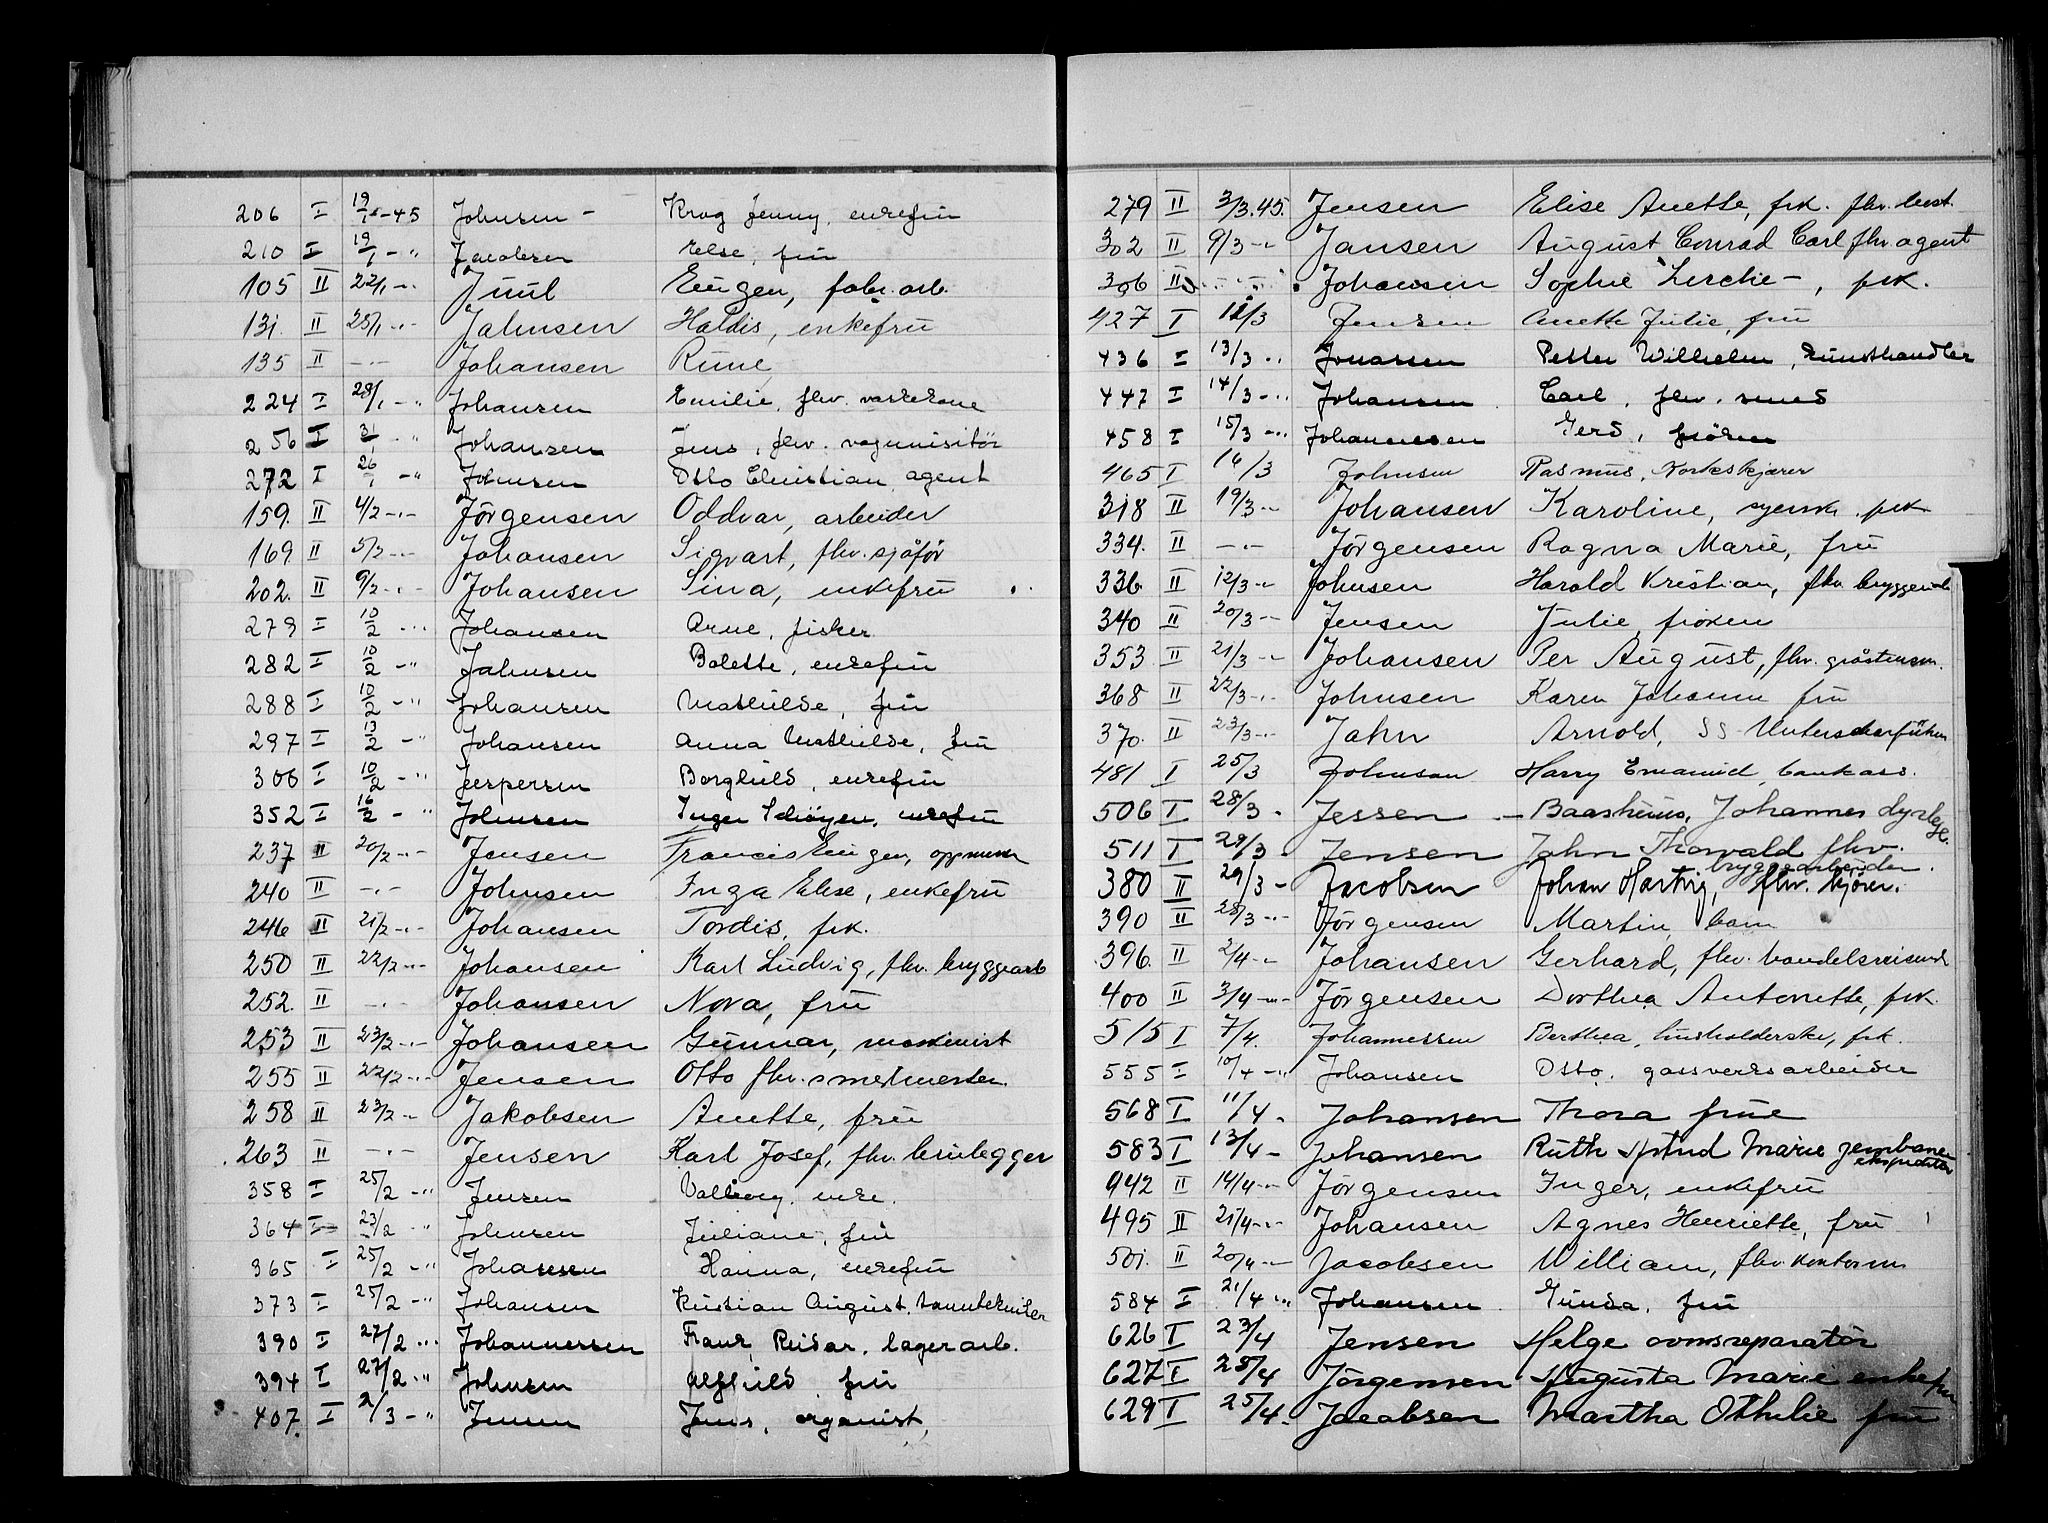 206 I 19/1-45 Johnsen - Krog Jenny, enkefru
210 I 19/1 - " Jacobsen Else, fru
105 II 22/1 - " Juul Eugen, fabr. arb.
131. II 25/1 - " Johnsen Haldis, enkefru
135 II - " - Johansen Rune
224 I 28/1 - " Johansen Emilie, fhv. vaskekone
256 I 31/1 - " Johansen Jens, fhv.
272 I 26/1 - " Johnsen Otto Christian, agent
159. II 4/2 - " - Jörgensen Oddvar, arbeider
169 II 5/2 - " - Johansen Sigvart, fhv. sjåfør
202. II 9/2 - " - Johansen Sina, enkefru
279 I 10/2 - " Johansen Arne, fisker
282 I 10/2 - " Johnsen Bolette, enkefru
288 I 10/2 - " Johansen Mathilde, fru
297 I 13/2 - " Johansen Anna Mathilde, fru
300 I 10/2 - " Jespersen Borghild, enkefru
352 I 16/2 - " Johnsen Inger Schöyen, enkefru
237 II 20/2 - " - Jensen Francis Eugen, oppsynsm
240 II - " - Johnsen Inga Elise, enkefru
246 II 21/2 - " - Johansen Tordis, frk.
250 II 22/2 - " - Johansen Karl Ludvig, fhv. bryggearb
252. II - " - Johansen Nora, fru
253 II 23/2 - " - Johansen Gunnar, maskinist
255 II 22/2 - " - Jensen Otto fhv. smedmester.
258 II 23/2 - " Jakobsen Anette, fru
263 II - " - Jensen Karl Josef, fhv. brulegger
358 I 25/2 - " Jensen Valborg, enke.
364 I 23/2 - " Johnsen Juliane, fru
365 I 25/2 - " Johansen Hanna, enkefru
373 I 25/2 - " Johansen Kristian August, tanntekniker
390 I 27/2 - " Johannessen Franz Reidar, lagerarb.
394 I 27/2 - " Johnsen Alfhild, fru
407. I 2/3 - " Jensen Jens, organist,
279 II 3/3.45. Jensen Elise Anette, frk. fhv. best.
302 II 9/3 - " Jansen August Conrad Carl fhv. agent
306 II - " - Johansen Sophie Lerche -, frk.
427 I 12/3 Jensen Anette Julie, fru
436 I 13/3 - " Jonassen Petter Wilhelm, kunsthandler
447 I 14/3 - " Johansen Carl, fhv. smed
458 I 15/3 - " Johannessen Gerd, frøken
465 I 16/3 Johnsen Rasmus, Korkskjærer
318 II 19/3 - " Johansen Karoline, syersk. frk
334. II - " - Jörgensen Ragna Marie, fru
336 II 12/3 - " Johnsen Harald Kristian, fhv. bryggearb
340 II 20/3 - " Jensen Julie, frøken
353 II 21/3 - " Johansen Per August, fhv. gråstensm.
368 II 22/3 - " Johnsen Karen Johanne fru
370. II 23/3 - " - Jahn Arnold, SS-Unterscharführer
481 I 25/3 Johnsen Harry Emanuel, bankass.
506 I 28/3 - Jessen - Baashuus, Johannes dyrlege.
511 I 29/3 - Jensen John Thorvald fhv.
bryggearbeider.
380 II 29/3 - Jacobsen Johan Hartvig, fhv. kjører.
390 II 28/3 - " - Jörgensen Martin, barn
396. II 2/4 - " Johansen Gerhard, fhv. handelsreisende
400 II 3/4 - " - Jörgensen Dorthea Antonette, frk.
515 I 7/4. Johannessen Berthea, husholderske, frk.
555 I 10/4 - " Johansen Otto. gassverksarbeider
568 I 11/4 - Johansen Thora frue
583 I 13/4 - Johansen Ruth Astrid Marie jernbane
ekspeditør
942 II 14/4 - " Jörgensen Inger, enkefru
495 II 21/4 - " - Johansen Agnes Henriette, fru
501. II 20/4 - " Jacobsen William, fhv. kontorm
584 I 21/4 " Johansen Gunda, fru
626 I 23/4 Jensen Helge ovnsreparatør
627 I 25/4 Jörgensen Augusta Marie enkefru
629 I 25/4. Jacobsen Martha Othilie fru